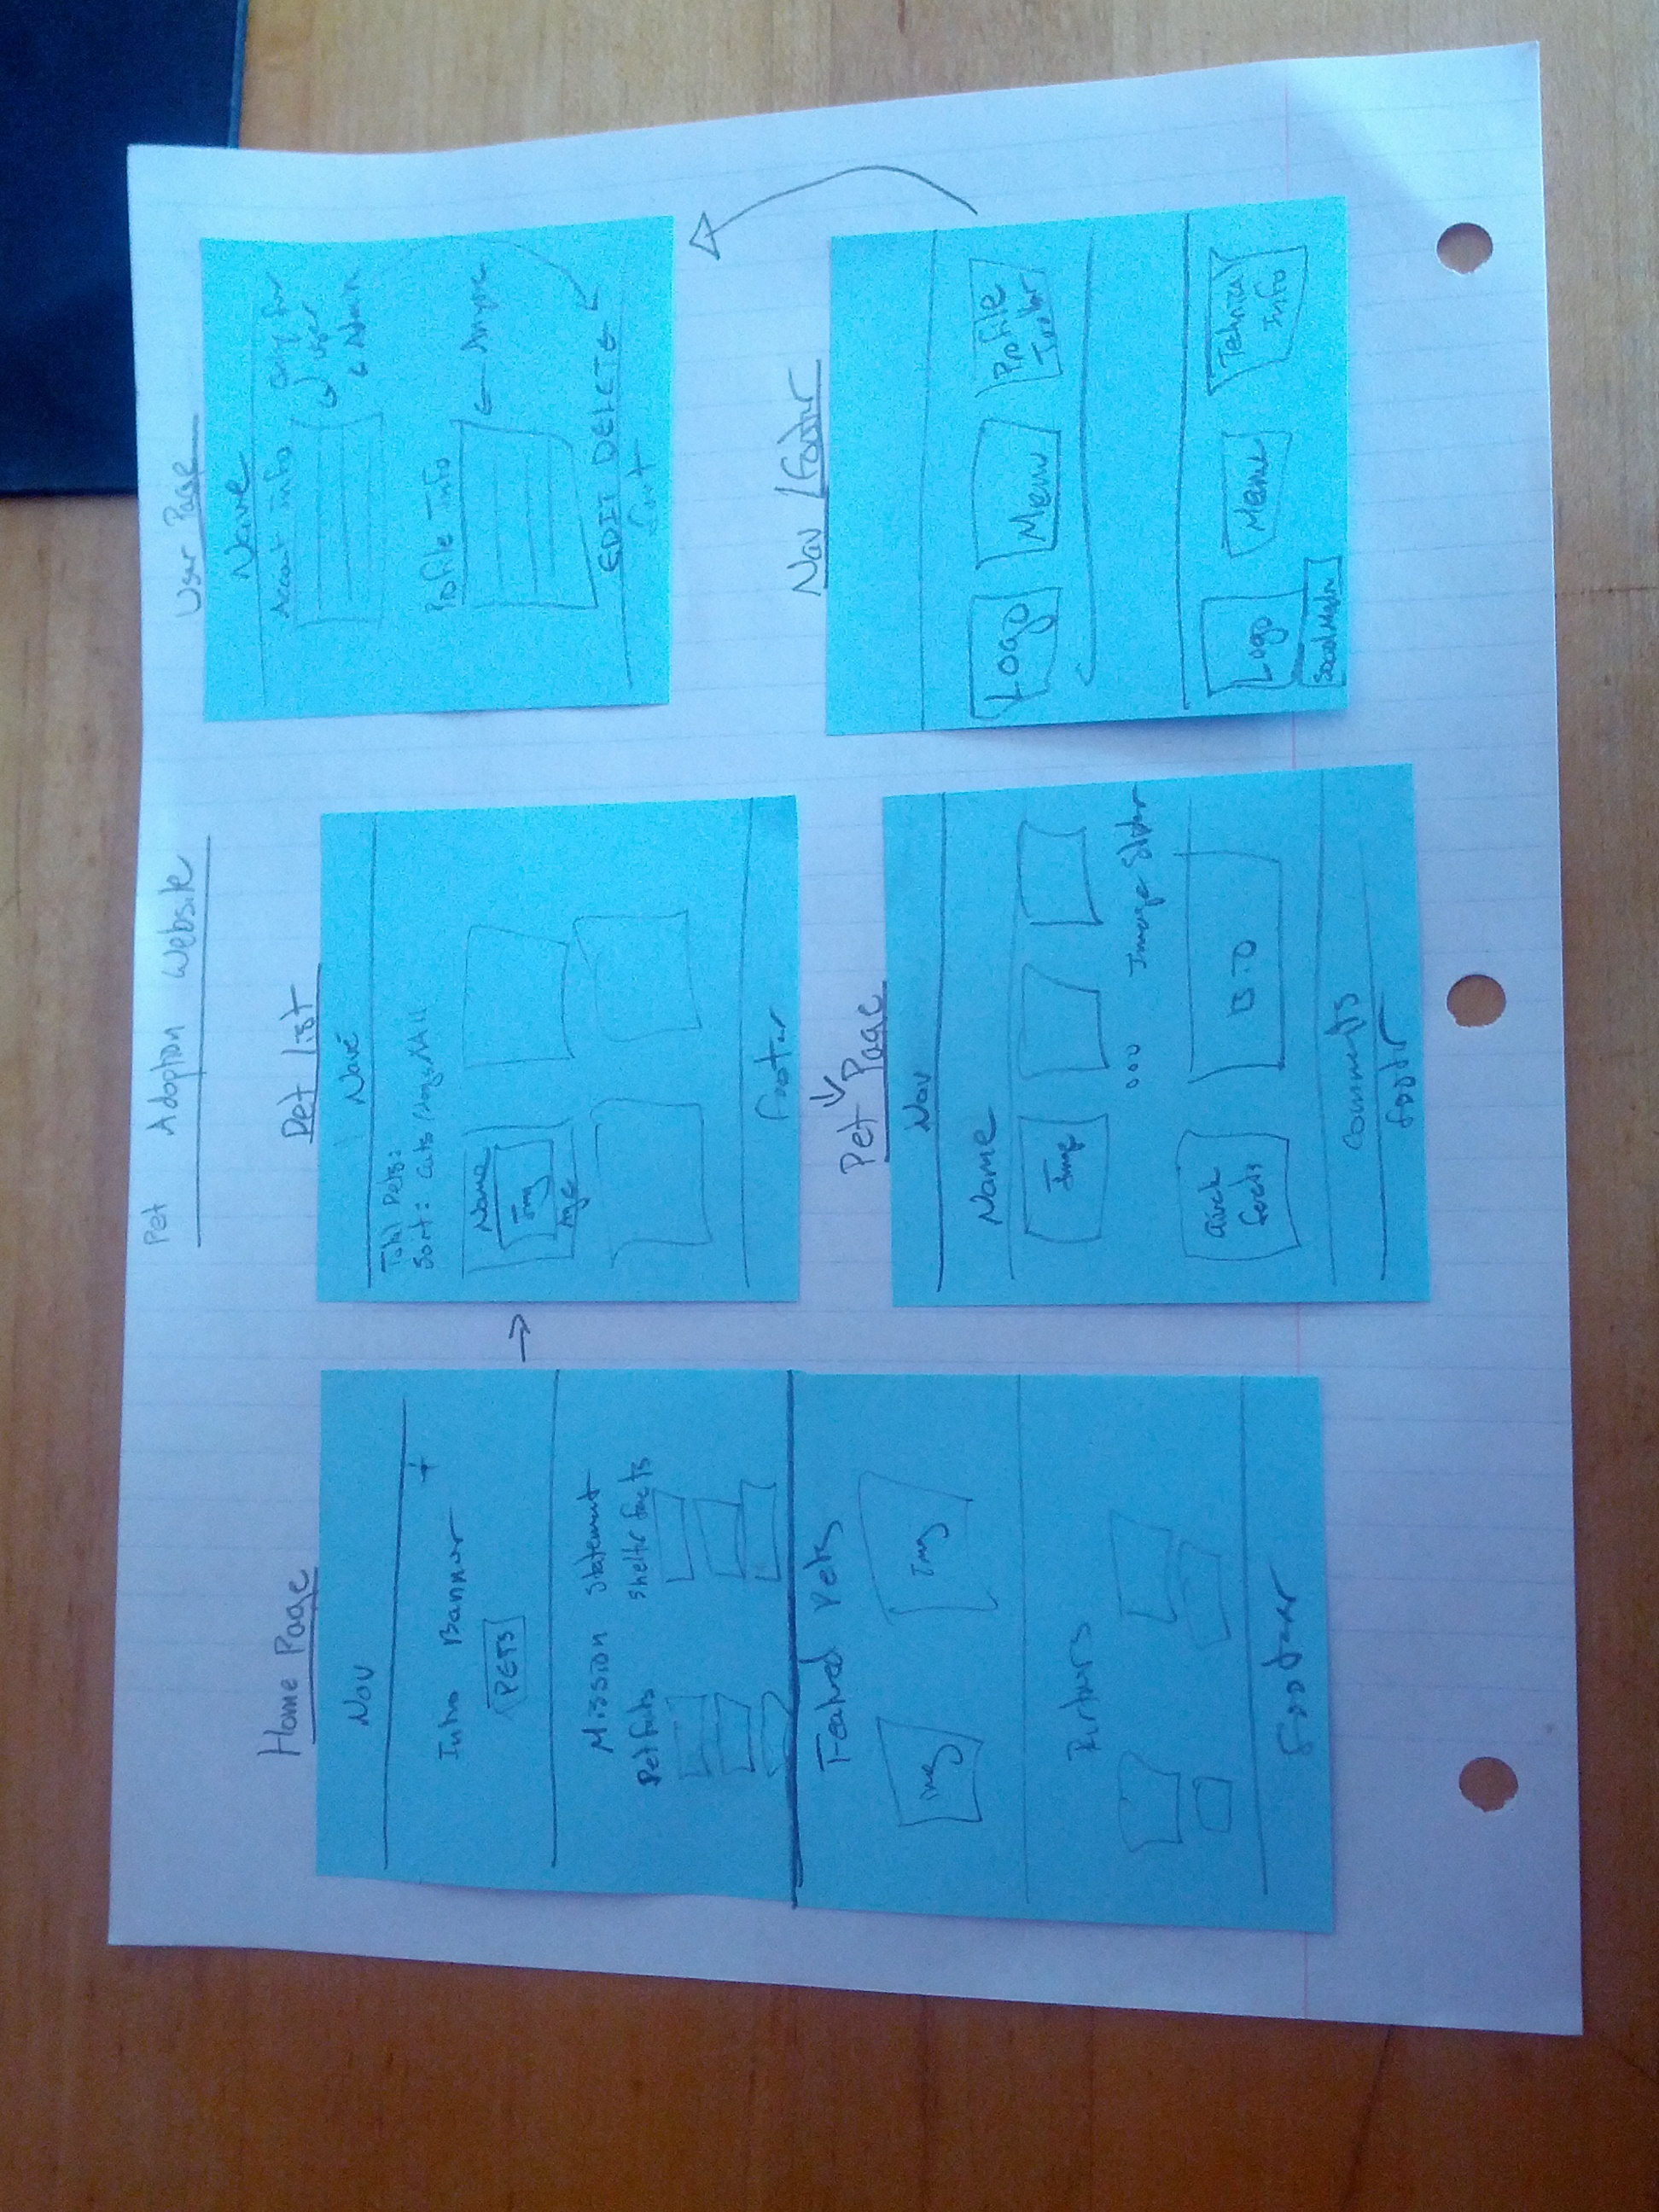 Pet Adoption Website
Home Page
Nov
Intro Banner
PETS
Mission Statement
Pet facts
Shelter facts
Featured Pets
Img
Img
Footer
Pet List
Total Pets:
Sort: Cats/Dogs/All
Name
Img
Age
Footer
Pet Page
Nav
Name
Img
ooo Image Slider
Quick
facts
BIO
Comments
footer
User Page
Account info
only for
user
Admin
Profile Info
Anyone
EDIT DELETE
Nav/Footer
Logo
Menu
Profile
Logo
Menu
Technical
Info
Social Media